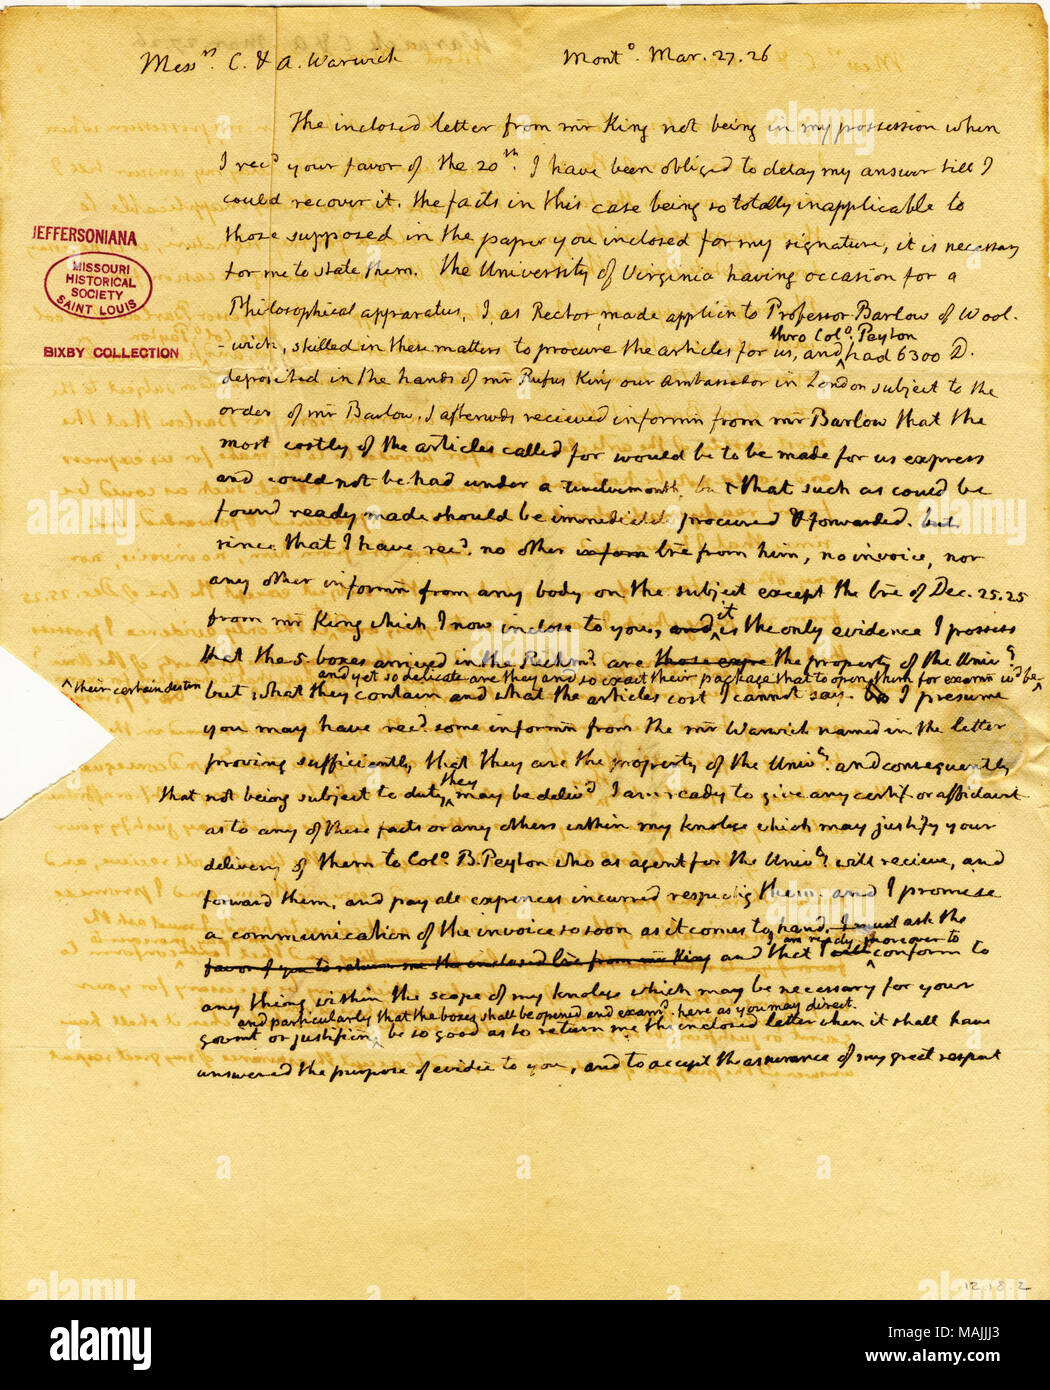 Mess.rs C. & A. Warwick Mont.o Mar. 27. 26
The inclosed letter from mr King not being in my possession when
I rec.d your favor of the 20th. I have been obliged to delay my answer till I
could recover it. the facts in this case being so totally inapplicable to
those supposed in the paper you inclosed for my signature, it is necessary
for me to state them. the University of Virginia having occasion for a
Philosophical apparatus, I, as Rector, made applicn to Professor Barlow of Wool-
thro Col.o Peyton
-wich, skilled in these matters to procure the articles for us, and ^ had 6300 D.
deposited in the hands of mr Rufus King our Ambassador in London subject to the
order of mr Barlow. I afterwds recieved informn from mr Barlow that the
most costly of the articles called for would be to be made for us express
and could not be had under a twelvemonth, but that such as could be
found ready made should be immediately procured & forwarded. but
since that I have rec.d no other inform lre from him, no invoice, nor
any other informn from any body on the subject except the lre of Dec. 25. 25
from mr King which I now inclose to you, and ^it is the only evidence I possess
that the 5. boxes arrived in the Richm.d are those expre the property of the Univ.ty
and yet so delicate are they and so exact their package that to open them for examn w'd be
^ their certain destrn
but, what they contain and what the articles cost I cannot say. I presume
you may have rec.d some informn from the mr Warwick named in the letter
proving sufficiently that they are the property of the Univ.ty and consequently
that not being subject to duty ^they may be deliv.d I am ready to give any certif. or affidavit
as to any of these facts or any others within my knolege which may justify your
delivery of them to Col.o B. Peyton who as agent for the Univ.ty will recieve, and
forward them, and pay all expences incurred respecting them. and I promise
a communication of the invoice so soon as it comes to hand. I must ask the
am ready moreover to
favor of you to return me the inclosed lre from mr King and that I will ^ conform to
any thing within the scope of my knolege which may be necessary for your
and particularly that the boxes shall be opened and exam.d here as you may direct.
govmt or justificn ^ be so good as to return me the inclosed letter when it shall have
answered the purpose of evidce to you, and to accept the assurance of my great respect
JEFFERSONIANA
MISSOURI
HISTORICAL
SOCIETY
SAINT LOUIS
BIXBY COLLECTION
12.18.2
alamy
Image ID: MAJJJ3
www.alamy.com